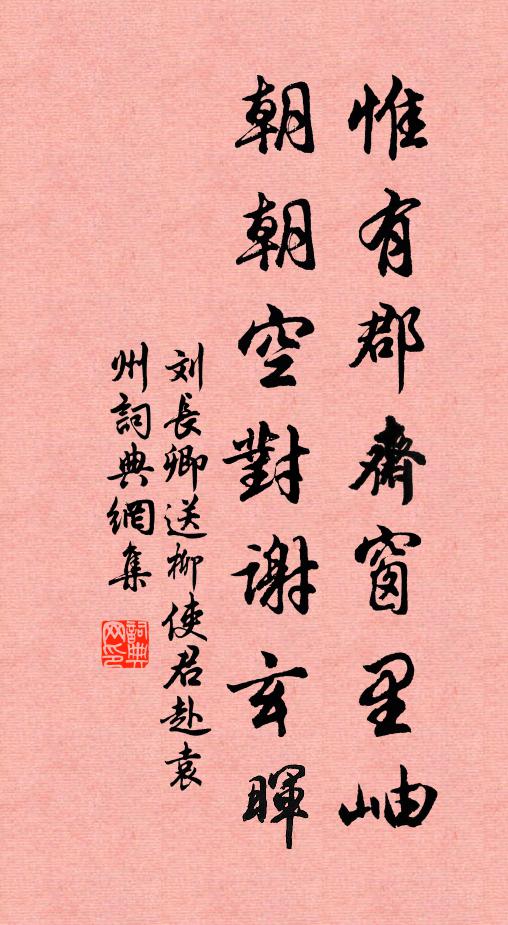 惟有郡齋窗里岫
朝朝空對謝玄暉
刘長卿送柳使君赴袁
州詞典網集
詞典网印